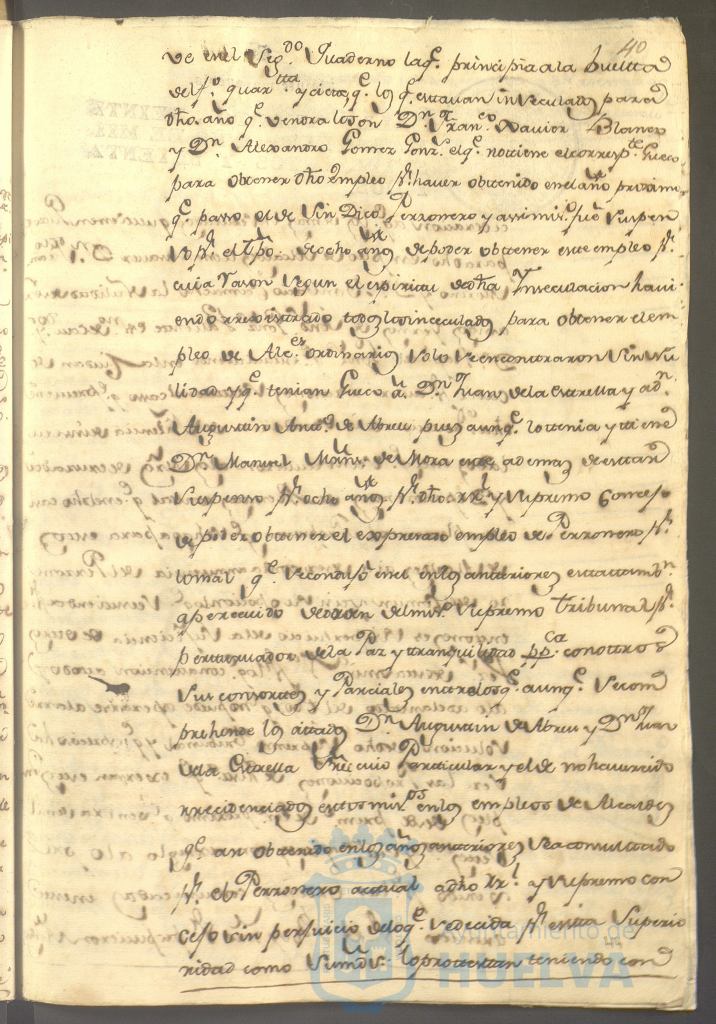 40
ve enel Seg.do Quaderno la q.e principia a la buelta
del f.o quar.ta y siete, q.e los q.e estavan inseculados para
dho. año q.e vendra lo son Dn. Fran.co Xavier Blanco
y Dn. Alexandro Gomez Gonz. el q.e no tiene el corresp.te Gueco
para obtener dho. empleo p.r haver obtenido en el año proximo
q.e paso el de Sindico Perronero y asi mis.o fue suspen
so p.r el tpo. de ocho años de poder obtener este empleo p.r
cuia razon segun el espiritu de dha. Inseculacion havi
endo rrexistrado todos los inseculados para obtener el em
pleo de Alc.es ordinarios solo se encontraron sin nu
lidad y q.e tenian Gueco a Dn. Juan de la Estrella y a Dn.
Augustin Ant.o de Abreu pues aunq.e lo tenia y tiene
Dn. Manuel Mrns. de Mora este ademas de estar
suspenso p.r ocho años p.r dho. Rl. y Supremo Consejo
de poder obtener el expresado empleo de Perronero p.r
lo mal q.e se condujo en el en los anteriores esta tambn.
apercevido de orden del mis.o Supremo Tribunal p.r
perturvador de la Paz y tranquilidad pp.ca con otros
sus consortes y Parciales entre los q.e aunq.e se com
prehende los citados Dn. Augustin de Abreu y Dn. Juan
de la Estrella sre. cuio Particular y el de no haver sido
rrecidenciados estos mis.os en los empleos de Alcaldes
q.e an obtenido en los años anteriores se a consultado
p.r el Perronero actual a dho. Rl. y Supremo Con
cejo sin perjuicio de lo q.e se decida p.r esta Superio
ridad como Sumds. lo protestan teniendo con
Ayuntamiento de
HUELVA